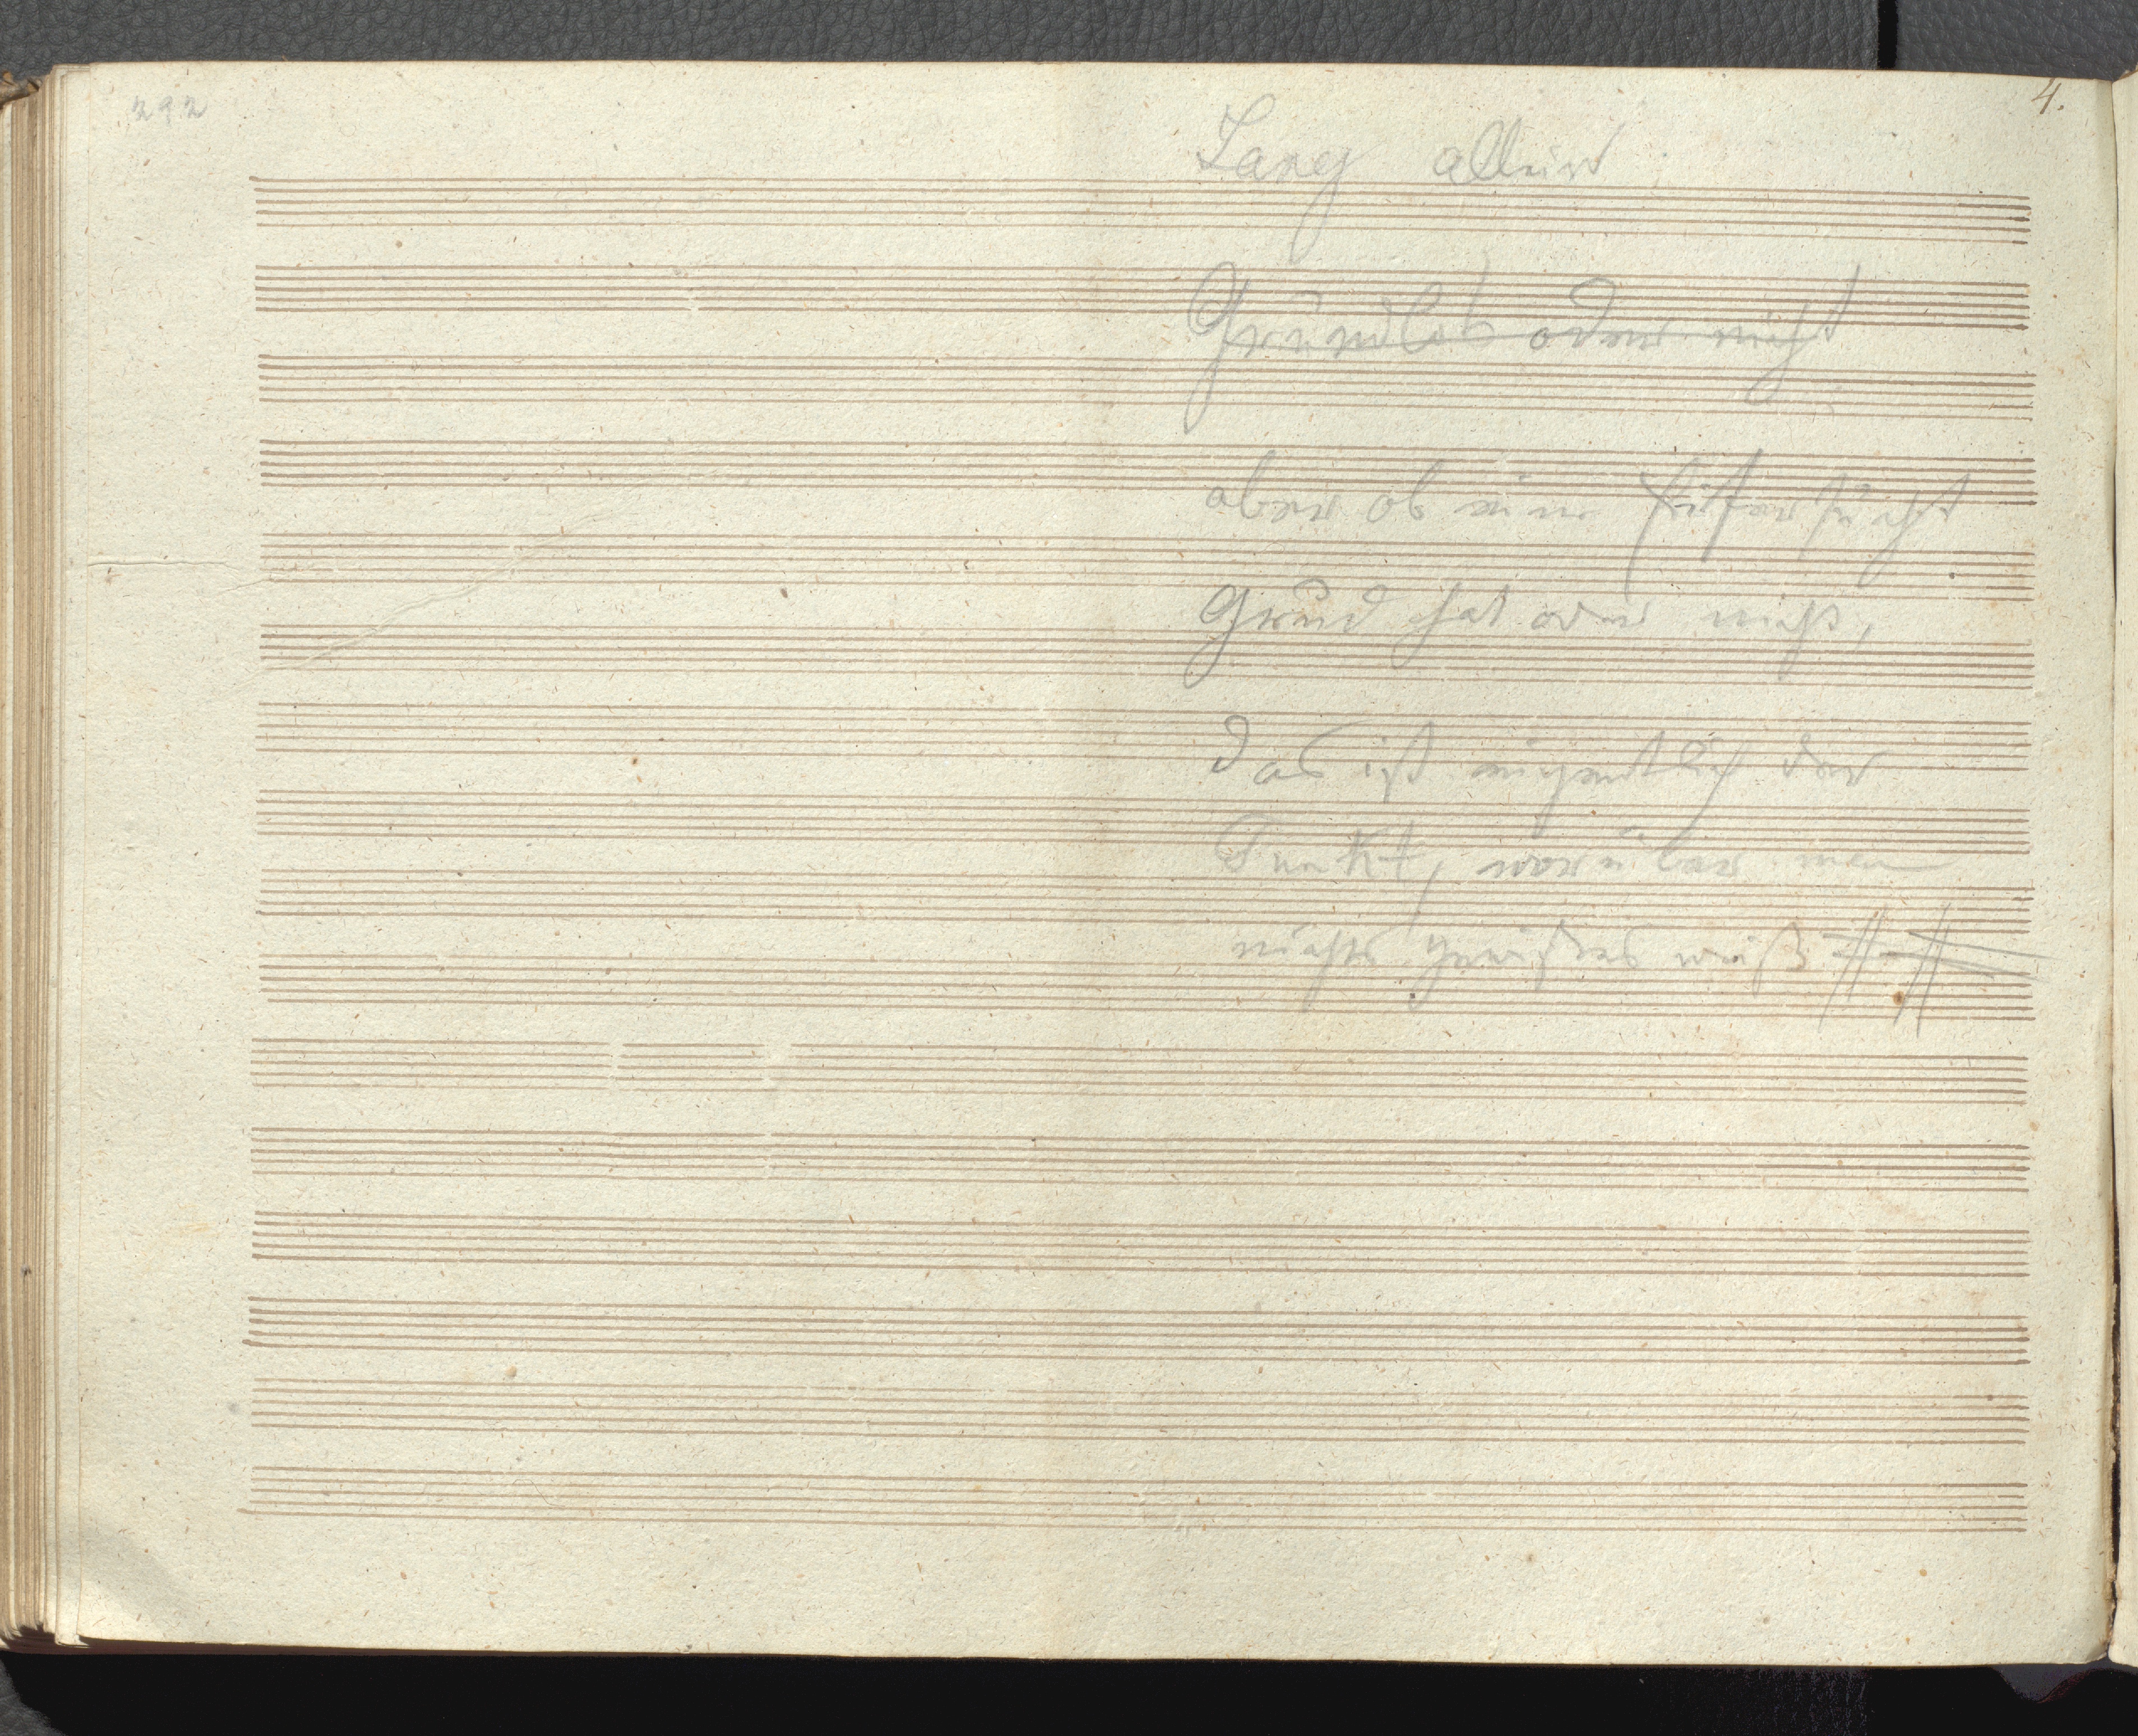 292
4.
Lang allein
Grundlos oder nicht
aber ob eine Eifersucht
Grund hat oder nicht,
das ist eigentlich der
Punkt, worüber man
nichts gewißes weiß